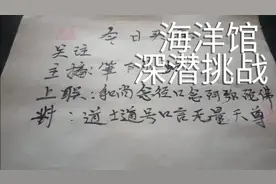 今日头
海洋馆
深潜挑战
关注
主播:笔
上联:和尚念经口念阿弥陀佛
对:道士道号口言无量天尊